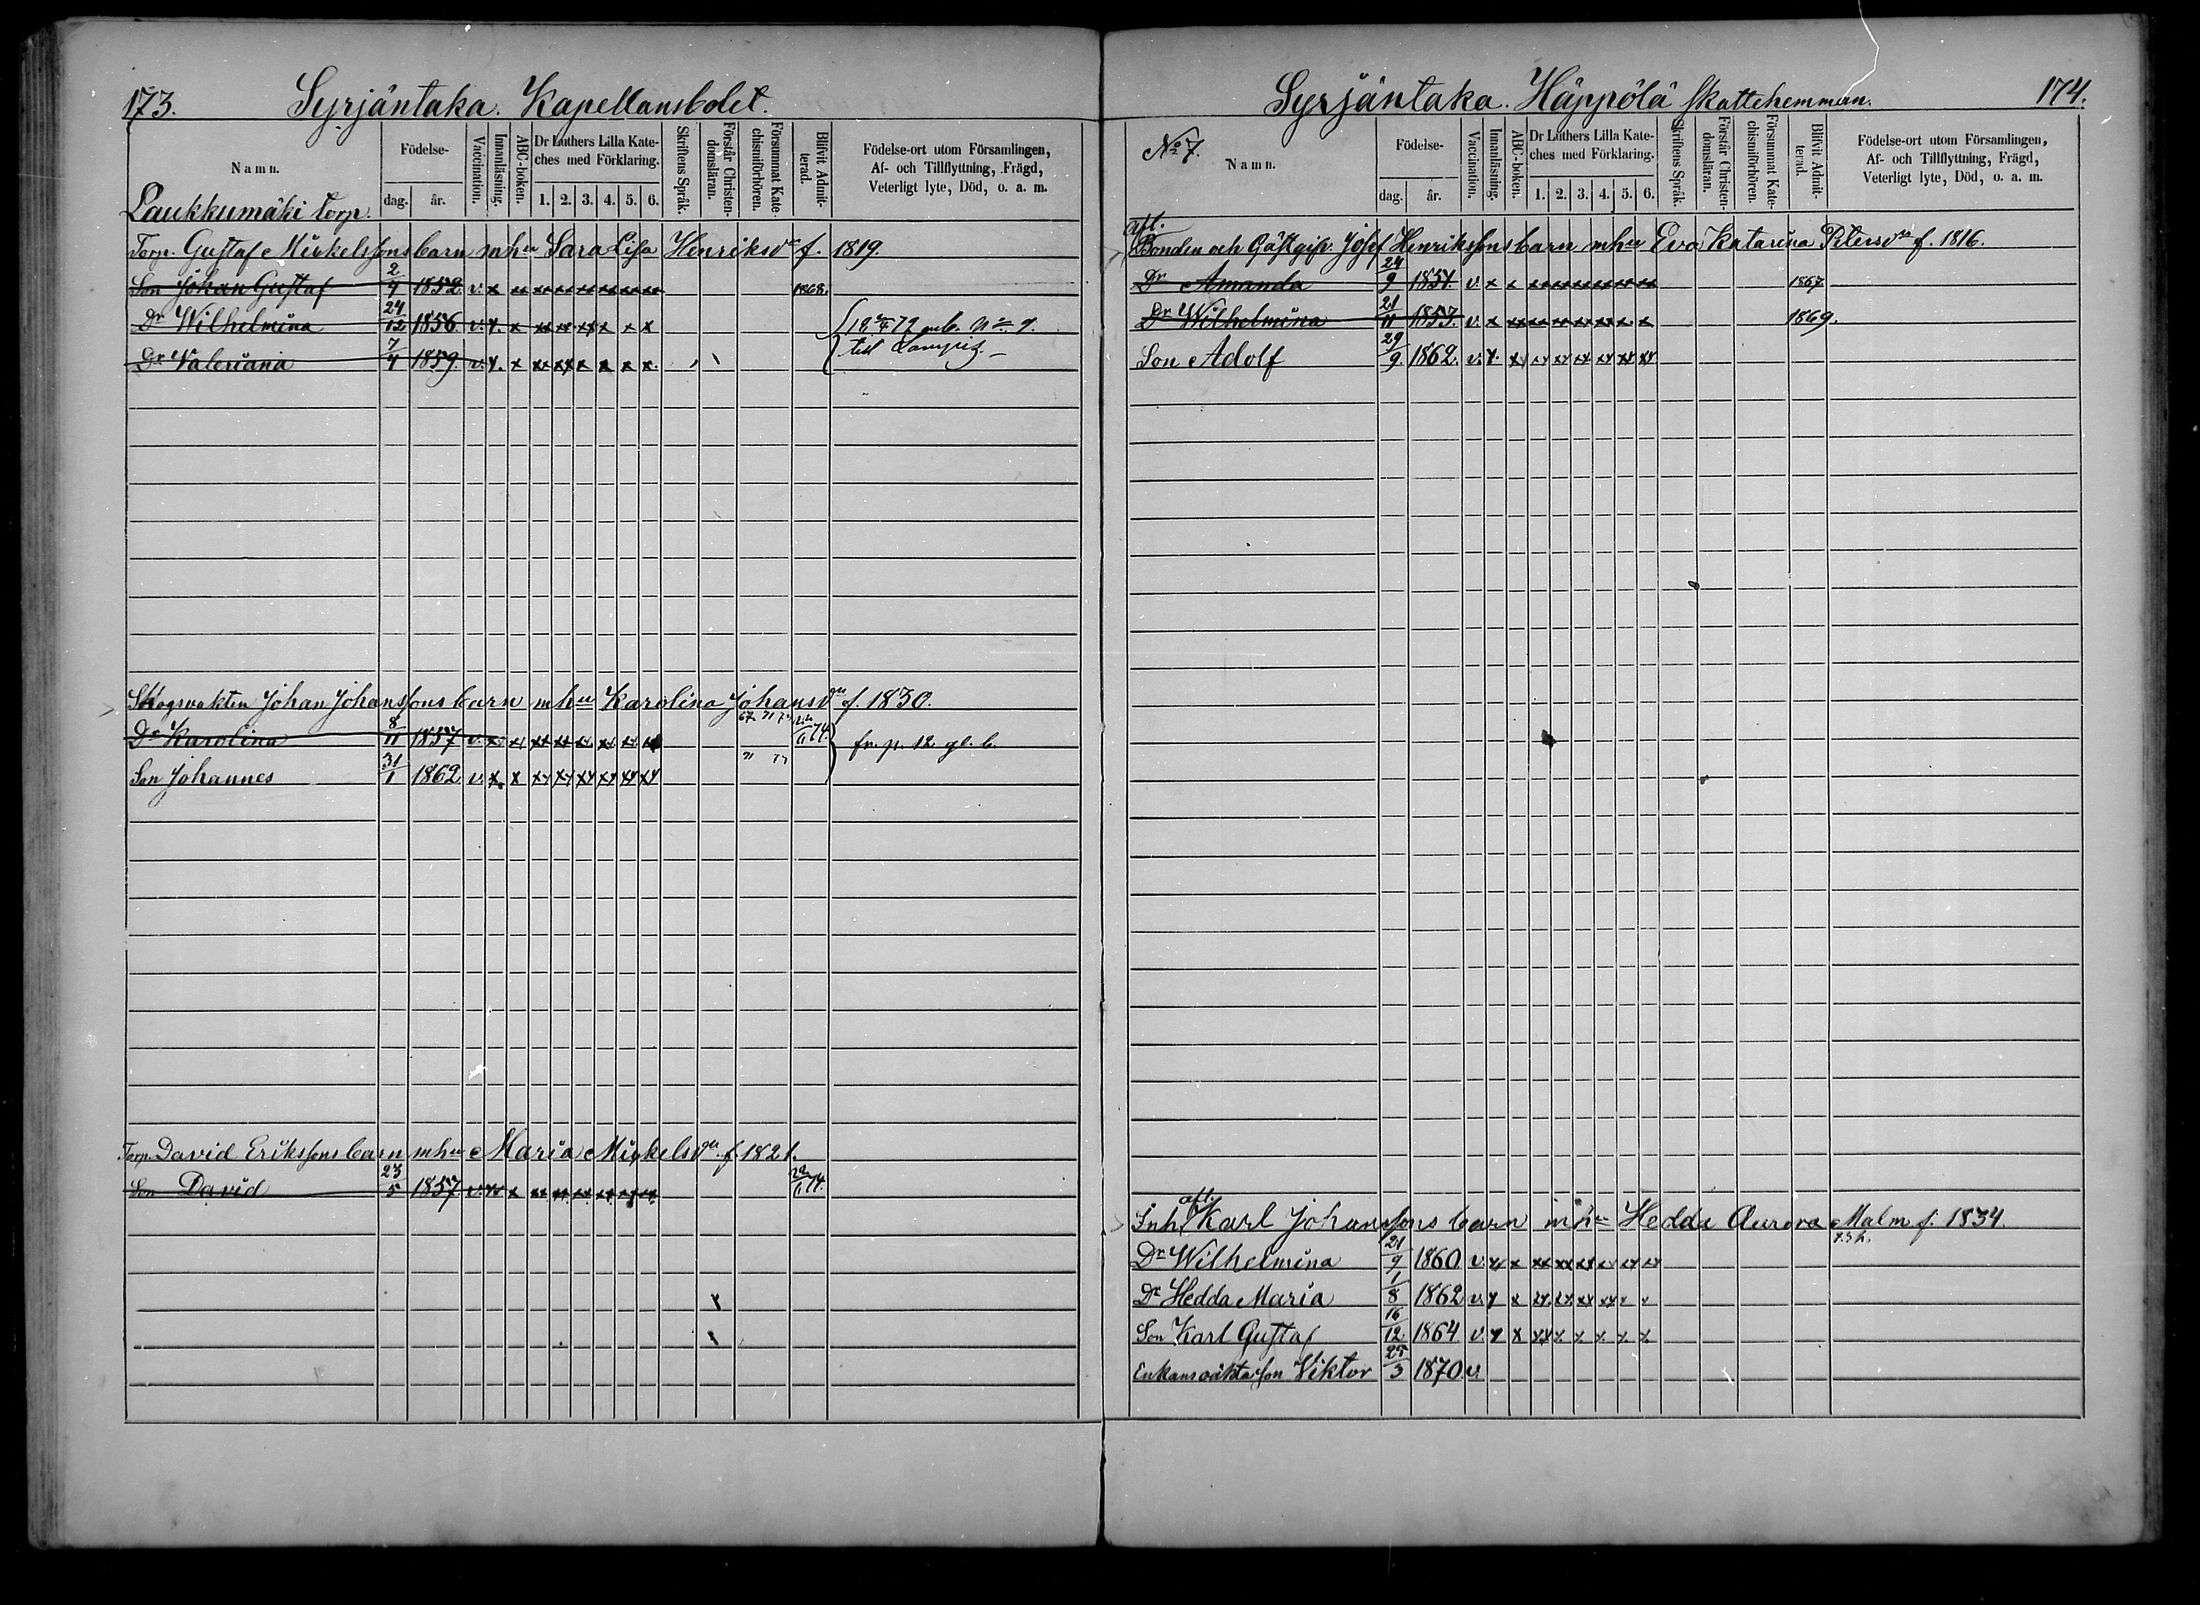 173. Syrjäntaka. Kapellansbolet.
Namn.
Födelse-
dag.
år.
Vaccination.
Innanläsning.
ABC-boken.
Dr Luthers Lilla Kate-
ches med Förklaring.
1. 2. 3. 4. 5. 6.
Skriftens Språk.
Förstår Christen-
domsläran.
Försummat Kate-
chismiförhören.
Blifvit Admit-
terad.
Födelse-ort utom Församlingen,
Af- och Tillflyttning, Frägd,
Veterligt lyte, Död, o. a. m.
Laukkumäki torp.
Torp. Gustaf Mickelssons barn m hu Sara Lisa Henriksdr f. 1819.
Son Johan Gustaf 2/4 1852 v. x 1868.
Dr Wilhelmina 24/12 1856 v. x. x
till
Dr Valeriana 7/4 1859. v. x. x
Skogsvakten Johan Johanssons barn m hu Karolina Johansdr f. 1830.
Dr Karolina 8/11 1857 v. x 74. fr. p. 12 gl. b.
Son Johannes 31/1 1862 v. x x
Torp. David Erikssons barn m hu Maria Mickelsdr f. 1821.
Son David 23/5 1857 v. x 74.
Syrjäntaka. Häppölä Skattehemman. 174.
No 7.
Namn.
Födelse-
dag.
år.
Vaccination.
Innanläsning.
ABC-boken.
Dr Luthers Lilla Kate-
ches med Förklaring.
1. 2. 3. 4. 5. 6.
Skriftens Språk.
Förstår Christen-
domsläran.
Försummat Kate-
chismiförhören.
Blifvit Admit-
terad.
Födelse-ort utom Församlingen,
Af- och Tillflyttning, Frägd,
Veterligt lyte, Död, o. a. m.
afl.
Bonden och Gästgifv. Josef Henrikssons barn m hu Eva Katarina Petersdr f. 1816.
Dr Amanda 24/9 1851. v. x x 1867
Dr Wilhelmina 21/11 1853. v. x 1869.
Son Adolf 29/9 1862 v. x.
afl.
Inh. Karl Johanssons barn m hu Hedda Aurora Malm f. 1834.
Dr Wilhelmina 21/9 1860 v. x x
Dr Hedda Maria 1/8 1862 v. x x
Son Karl Gustaf 16/12 1864 v. x x
Enkans oäkta son Viktor 25/3 1870 v.